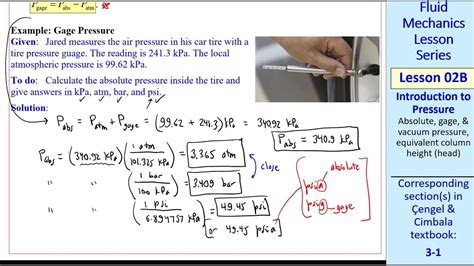 P_gage = P_abs - P_atm
Example: Gage Pressure
Given: Jared measures the air pressure in his car tire with a
tire pressure guage. The reading is 241.3 kPa. The local
atmospheric pressure is 99.62 kPa.
To do: Calculate the absolute pressure inside the tire and
give answers in kPa, atm, bar, and psi.
Solution:
P_abs = P_atm + P_gage = (99.62 + 241.3) kPa = 340.92 kPa
P_abs = 340.9 kPa
P_abs = (340.92 kPa) (1 atm / 101.325 kPa) = 3.365 atm
" " (1 bar / 100 kPa) = 3.409 bar
close
" " (1 psi / 6.894757 kPa) = 49.45 psi
[or 49.45 psia]
absolute
psia
psig - gage
Fluid
Mechanics
Lesson
Series
Lesson 02B
Introduction to
Pressure
Absolute, gage, &
vacuum pressure,
equivalent column
height (head)
Corresponding
section(s) in
Çengel &
Cimbala
textbook:
3-1